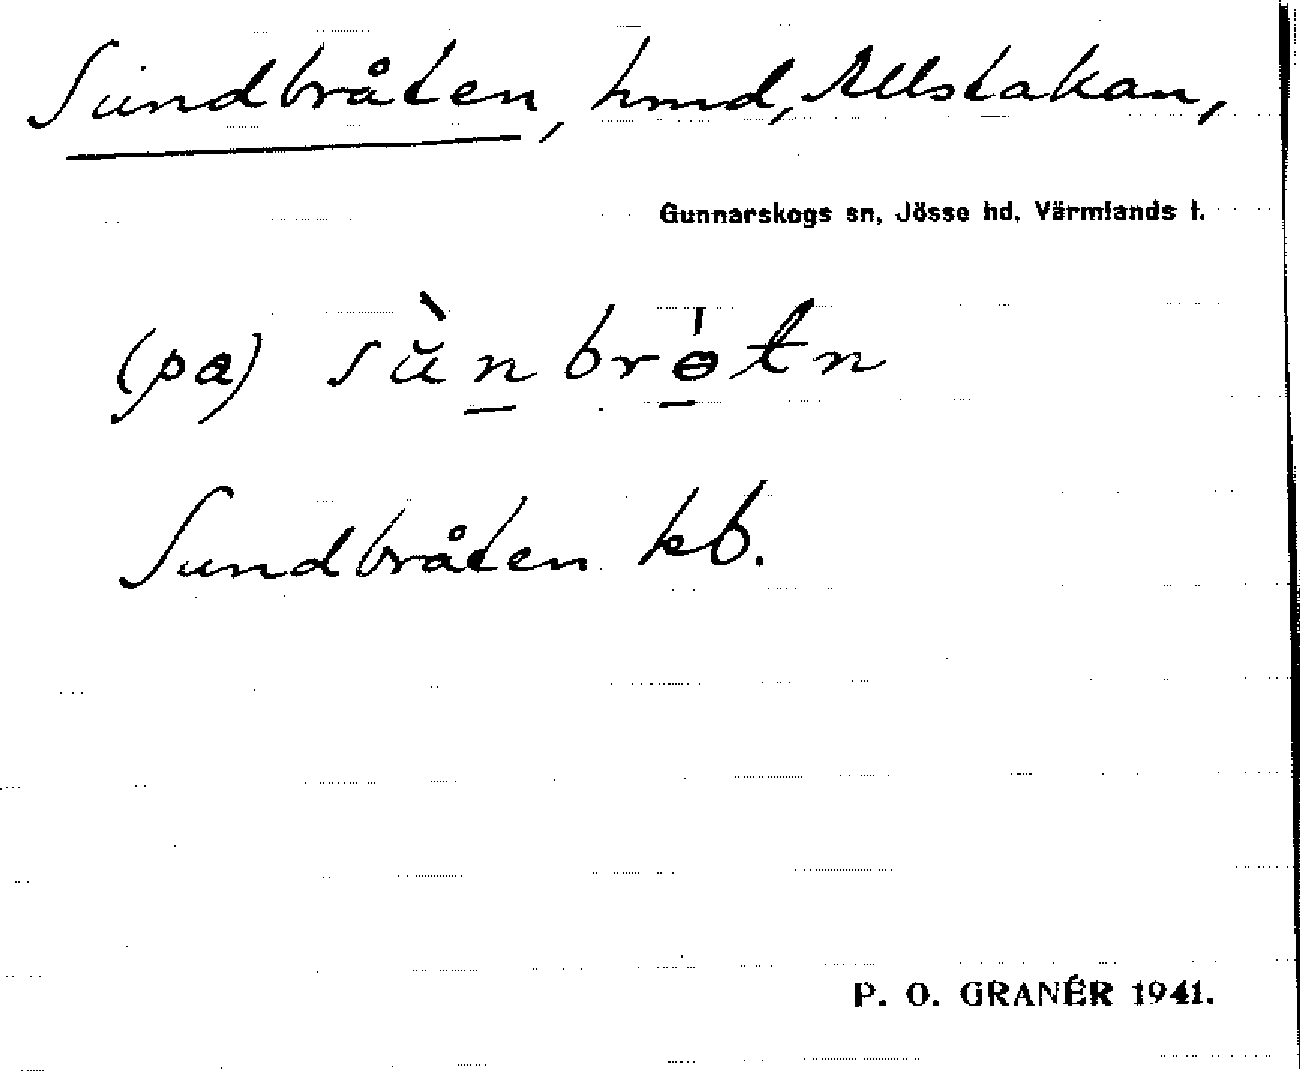 Sundbråten, hmd, Allstakan,
Gunnarskogs sn, Jösse hd, Värmlands l.
(pa) sŭ̀n brɵ́tn
Sundbråten kb.
P. O. GRANÉR 1941.